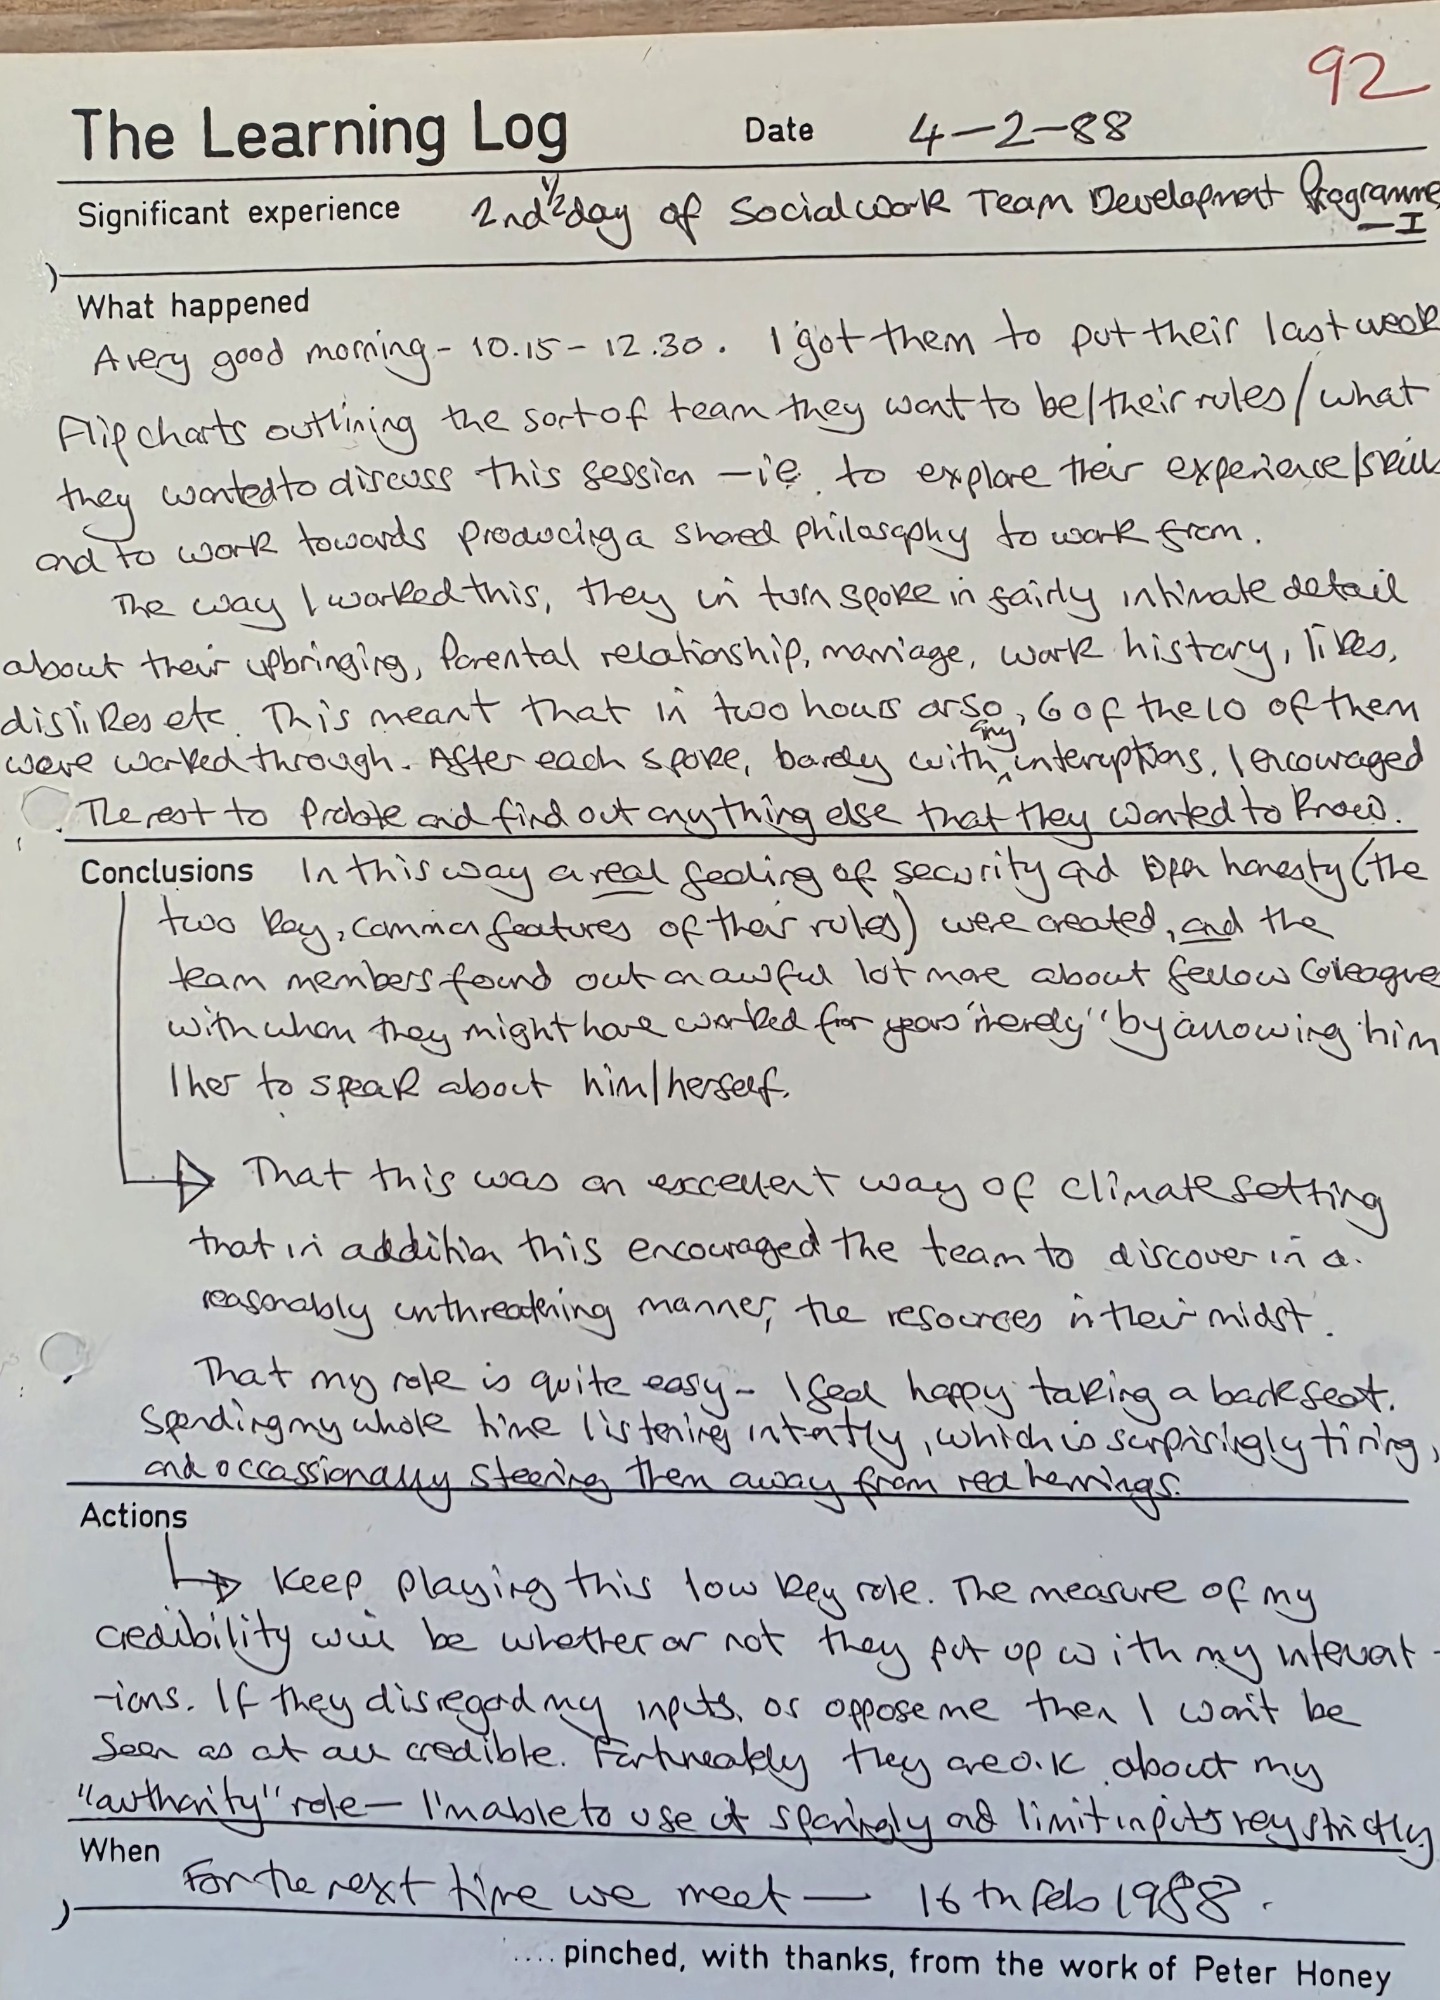 92
The Learning Log Date 4-2-88
Significant experience 2nd 1/2 day of Social Work Team Development Programme
-I
What happened
A very good morning - 10.15 - 12.30. I got them to put their last week
Flipcharts outlining the sort of team they want to be/their rules/what
they wanted to discuss this session - ie. to explore their experience/skills
and to work towards producing a shared philosophy to work from.
The way I worked this, they in turn spoke in fairly intimate detail
about their upbringing, Parental relationship, marriage, work history, likes,
dislikes etc. This meant that in two hours or so, 6 of the 10 of them
were worked through. After each spoke, barely with any interuptions, I encouraged
The rest to Probe and find out anything else that they wanted to know.
Conclusions In this way a real feeling of security and open honesty (the
two key, common features of their rules) were created, and the
team members found out an awful lot more about fellow Colleague
with whom they might have worked for years "merely" by allowing him
/her to speak about him/herself.
That this was an excellent way of climate setting
that in addition this encouraged the team to discover in a
reasonably unthreatening manner, the resources in their midst.
That my role is quite easy - I feel happy taking a back seat.
Spending my whole time listening intently, which is surprisingly tiring,
and occassionally steering them away from red herrings.
Actions
Keep playing this low key role. The measure of my
credibility will be whether or not they put up with my intervent-
-ions. If they disregard my inputs, or oppose me then I won't be
Seen as at all credible. Fortuneately they are o.k about my
"authority" role - I'm able to use it sparingly and limit inputs very strictly
When
For the next time we meet - 16th Feb 1988.
.... pinched, with thanks, from the work of Peter Honey